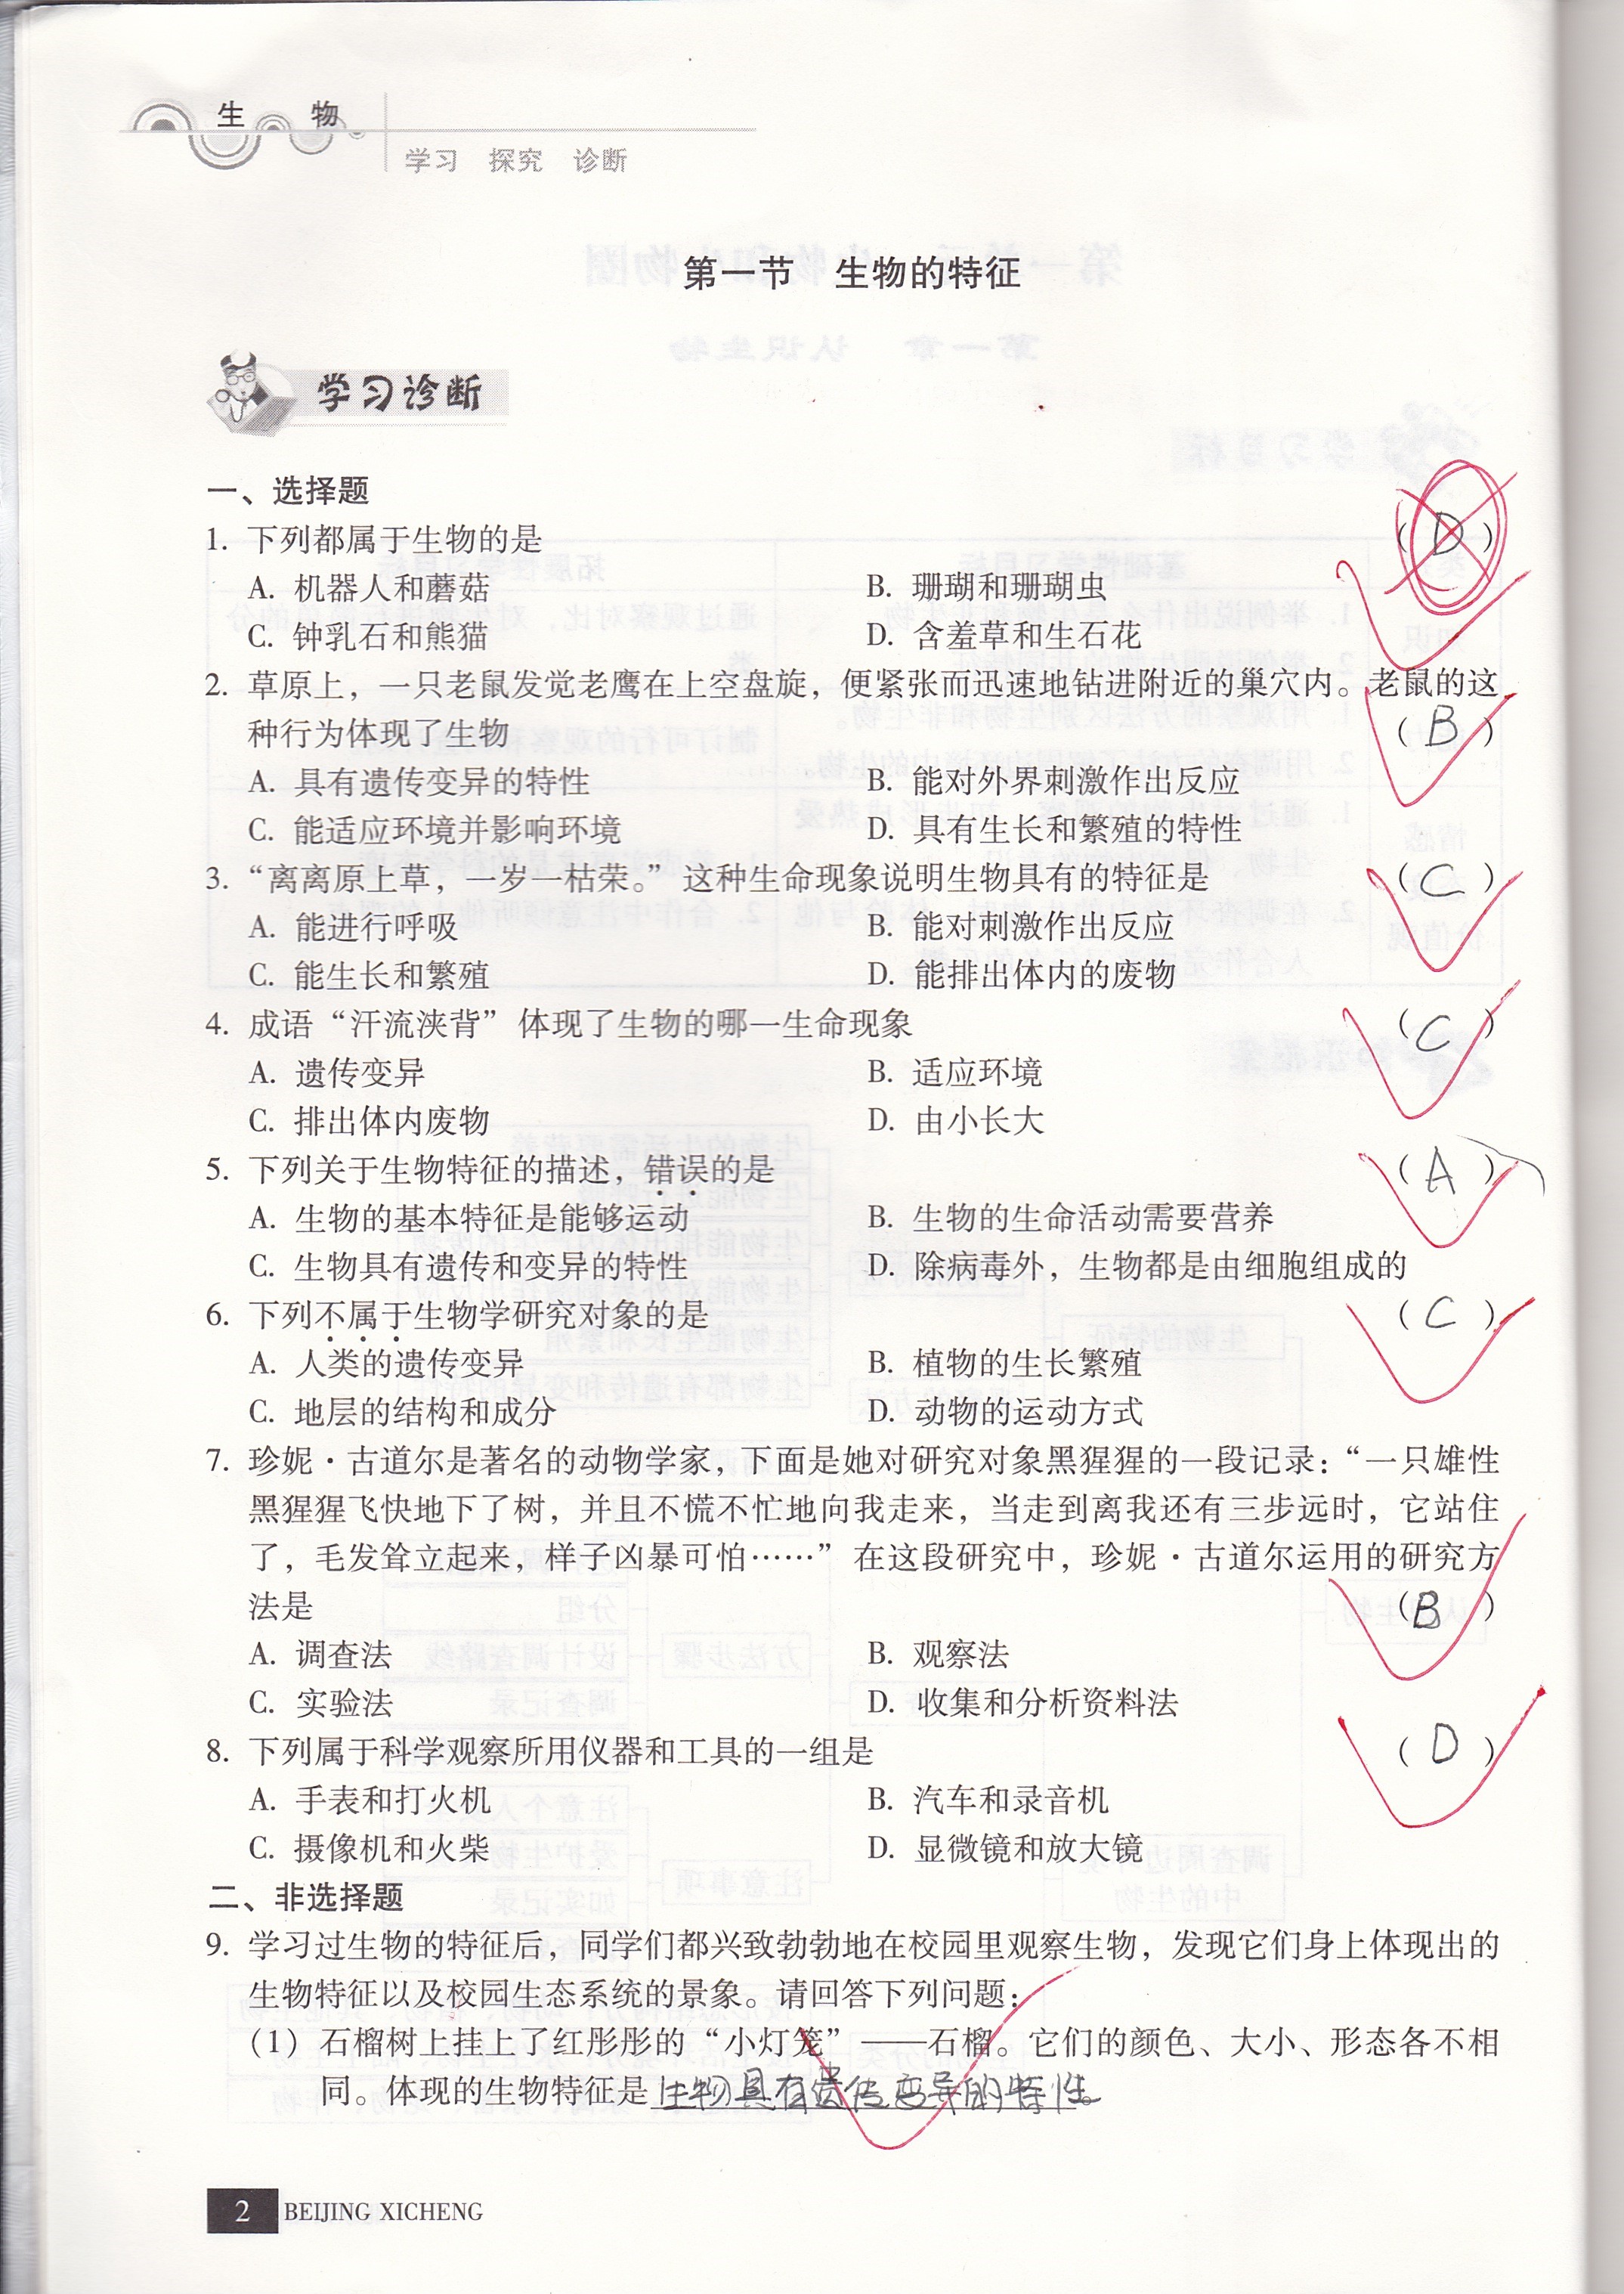 生 物
学习 探究 诊断
第一节 生物的特征
学习诊断
一、选择题
1. 下列都属于生物的是 ( D )
A. 机器人和蘑菇 B. 珊瑚和珊瑚虫
C. 钟乳石和熊猫 D. 含羞草和生石花
2. 草原上，一只老鼠发觉老鹰在上空盘旋，便紧张而迅速地钻进附近的巢穴内。老鼠的这
种行为体现了生物 ( B )
A. 具有遗传变异的特性 B. 能对外界刺激作出反应
C. 能适应环境并影响环境 D. 具有生长和繁殖的特性
3. “离离原上草，一岁一枯荣。”这种生命现象说明生物具有的特征是 ( C )
A. 能进行呼吸 B. 能对刺激作出反应
C. 能生长和繁殖 D. 能排出体内的废物
4. 成语“汗流浃背”体现了生物的哪一生命现象 ( C )
A. 遗传变异 B. 适应环境
C. 排出体内废物 D. 由小长大
5. 下列关于生物特征的描述，错误的是 ( A )
A. 生物的基本特征是能够运动 B. 生物的生命活动需要营养
C. 生物具有遗传和变异的特性 D. 除病毒外，生物都是由细胞组成的
6. 下列不属于生物学研究对象的是 ( C )
A. 人类的遗传变异 B. 植物的生长繁殖
C. 地层的结构和成分 D. 动物的运动方式
7. 珍妮·古道尔是著名的动物学家，下面是她对研究对象黑猩猩的一段记录：“一只雄性
黑猩猩飞快地下了树，并且不慌不忙地向我走来，当走到离我还有三步远时，它站住
了，毛发耸立起来，样子凶暴可怕……”在这段研究中，珍妮·古道尔运用的研究方
法是 ( B )
A. 调查法 B. 观察法
C. 实验法 D. 收集和分析资料法
8. 下列属于科学观察所用仪器和工具的一组是 ( D )
A. 手表和打火机 B. 汽车和录音机
C. 摄像机和火柴 D. 显微镜和放大镜
二、非选择题
9. 学习过生物的特征后，同学们都兴致勃勃地在校园里观察生物，发现它们身上体现出的
生物特征以及校园生态系统的景象。请回答下列问题：
(1) 石榴树上挂上了红彤彤的“小灯笼”——石榴。它们的颜色、大小、形态各不相
同。体现的生物特征是生物具有遗传变异的特性。
2 BEIJING XICHENG